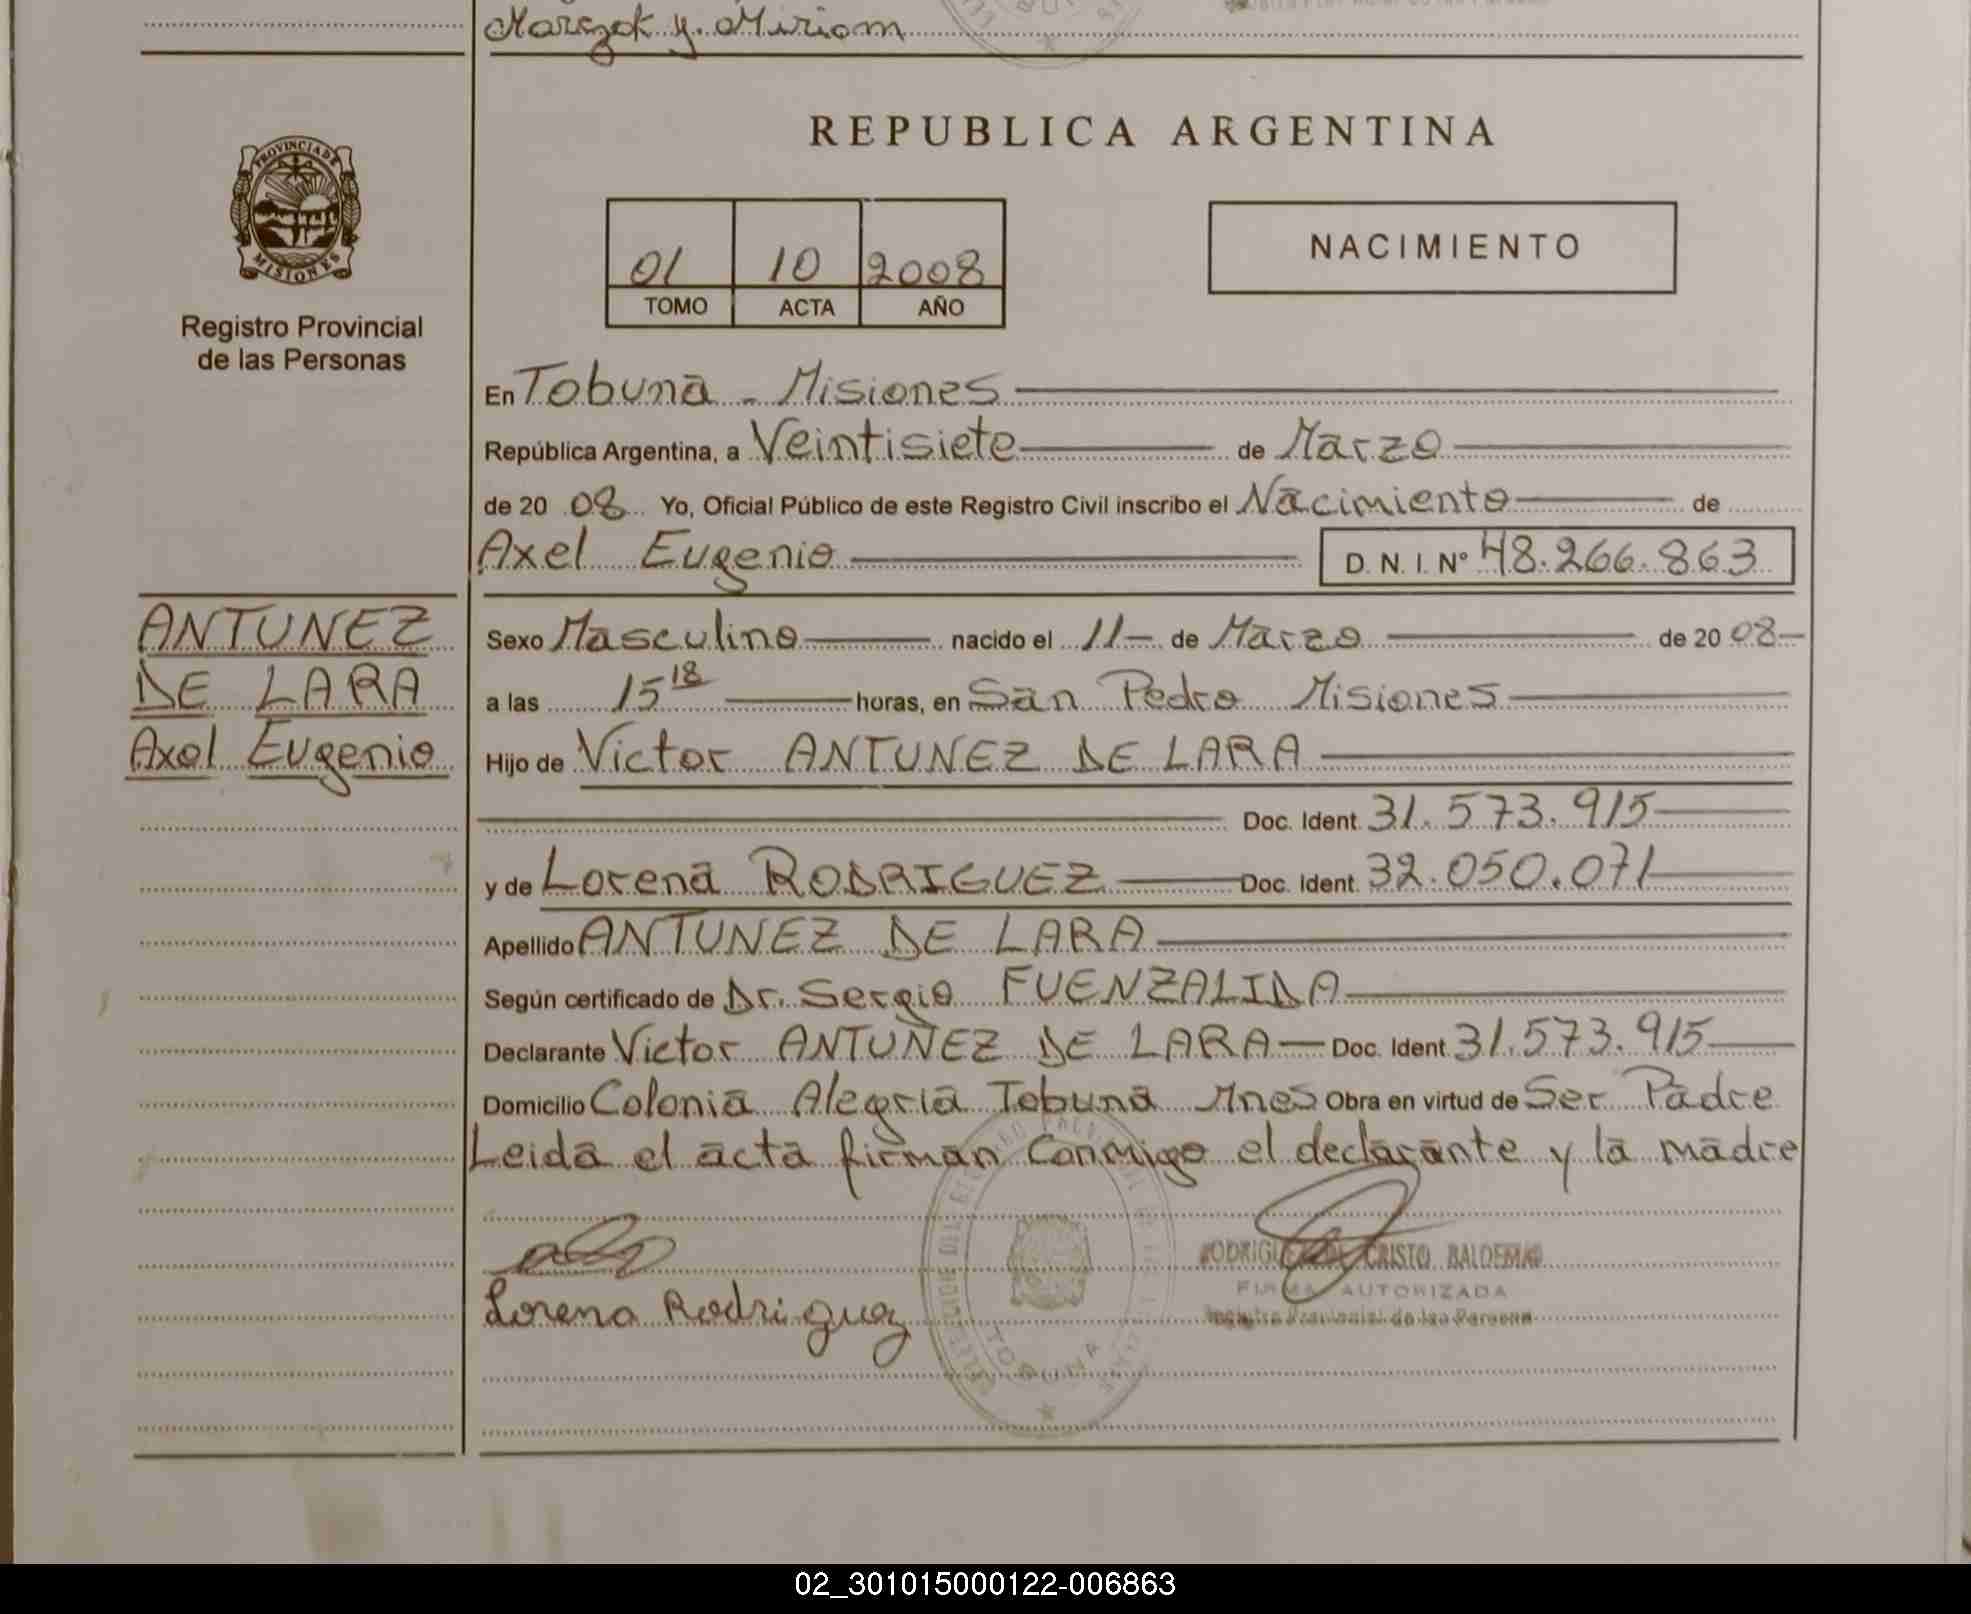 Marczok y Miriam
PROVINCIA DE
MISIONES
Registro Provincial
de las Personas
REPUBLICA ARGENTINA
01 10 2008
TOMO ACTA AÑO
NACIMIENTO
En Tobuna - Misiones
República Argentina, a Veintisiete de Marzo
de 20 08 Yo, Oficial Público de este Registro Civil inscribo el Nacimiento de
Axel Eugenio D. N. I. Nº 48.266.863
ANTUNEZ
DE LARA
Axel Eugenio
Sexo Masculino nacido el 11 de Marzo de 20 08
a las 15 18 horas, en San Pedro Misiones
Hijo de Victor ANTUNEZ DE LARA
Doc. Ident. 31.573.915
y de Lorena RODRIGUEZ Doc. Ident. 32.050.071
Apellido ANTUNEZ DE LARA
Según certificado de Dr. Sergio FUENZALIDA
Declarante Victor ANTUNEZ DE LARA Doc. Ident. 31.573.915
Domicilio Colonia Alegria Tobuna Mnes Obra en virtud de Ser Padre
Leida el acta firman Conmigo el declarante y la madre
Lorena Rodriguez
CRISTO BALDEMAR
FIRMA AUTORIZADA
Registro Provincial de las Personas
TOBUNA
02_301015000122-006863